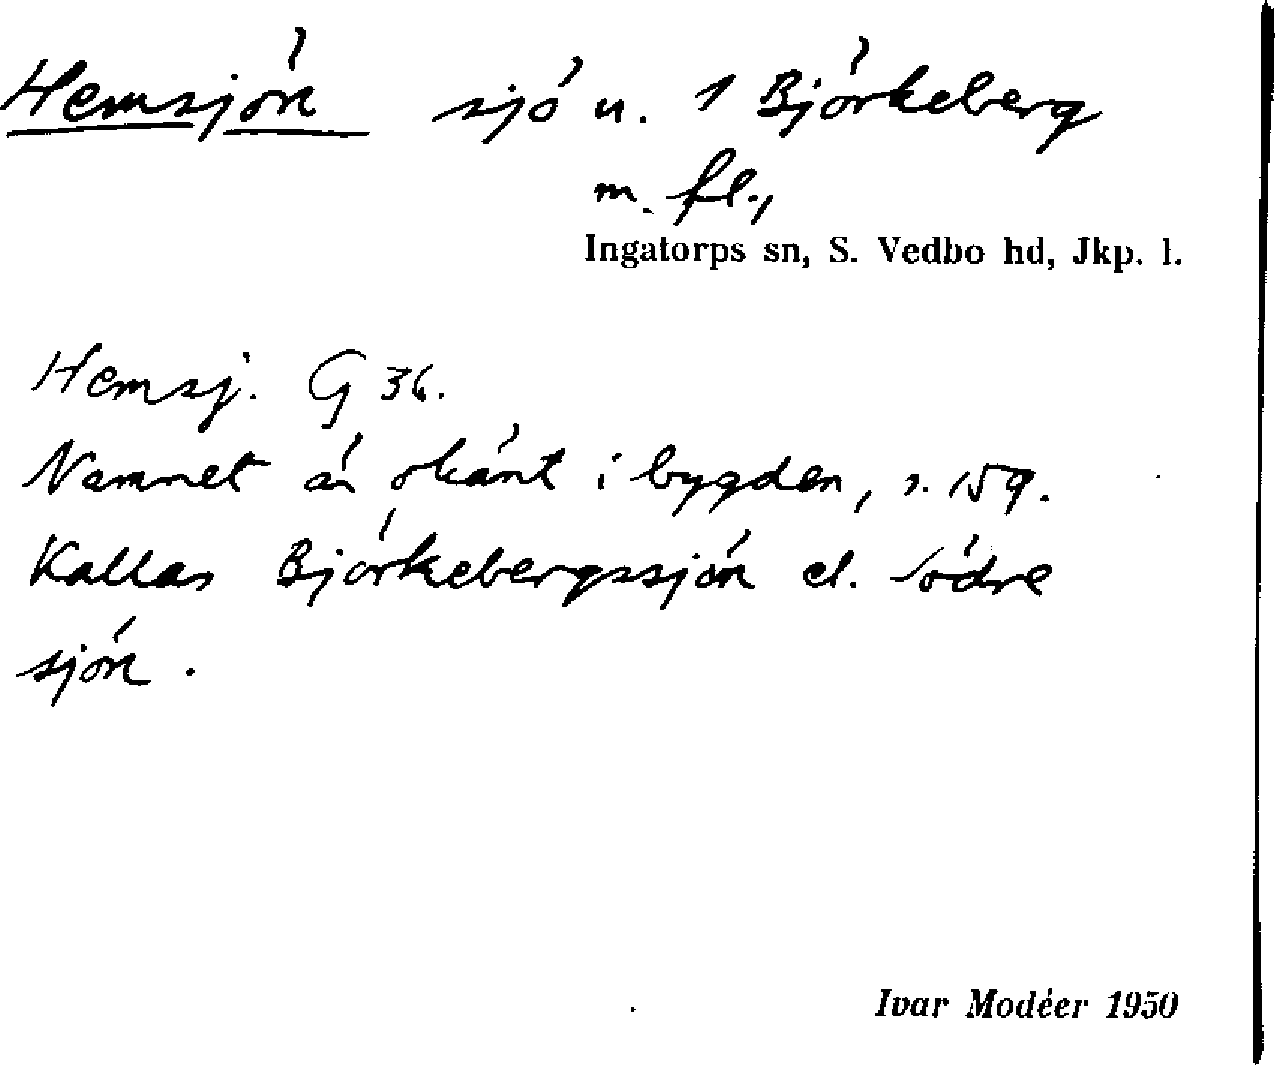 Hemsjön sjö u. 1 Björkeberg
m. fl.,
Ingatorps sn, S. Vedbo hd, Jkp. l.
Hemsj. G 36.
Namnet är okänt i bygden, s. 159.
Kallas Björkebergssjön el. Södre
sjön.
Ivar Modéer 1950